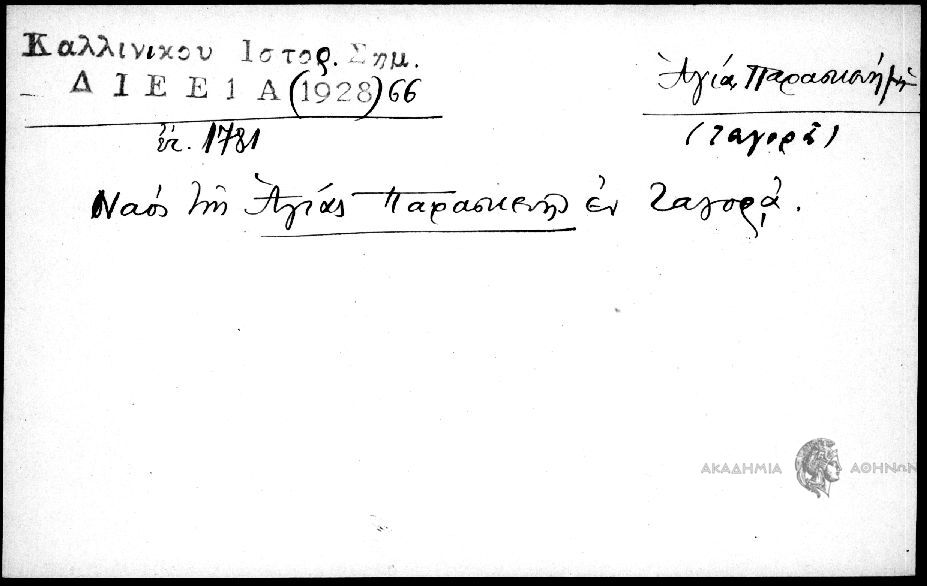 Καλλινικου Ιστορ. Σημ.
ΔΙΕΕ1Α (1928) 66
ἔτ. 1781
Ἁγία Παρασκευή
(Ζαγορᾶ)
Ναός τῆς Ἁγίας Παρασκευῆς ἐν Ζαγορᾷ.
ΑΚΑΔΗΜΙΑ ΑΘΗΝΩΝ